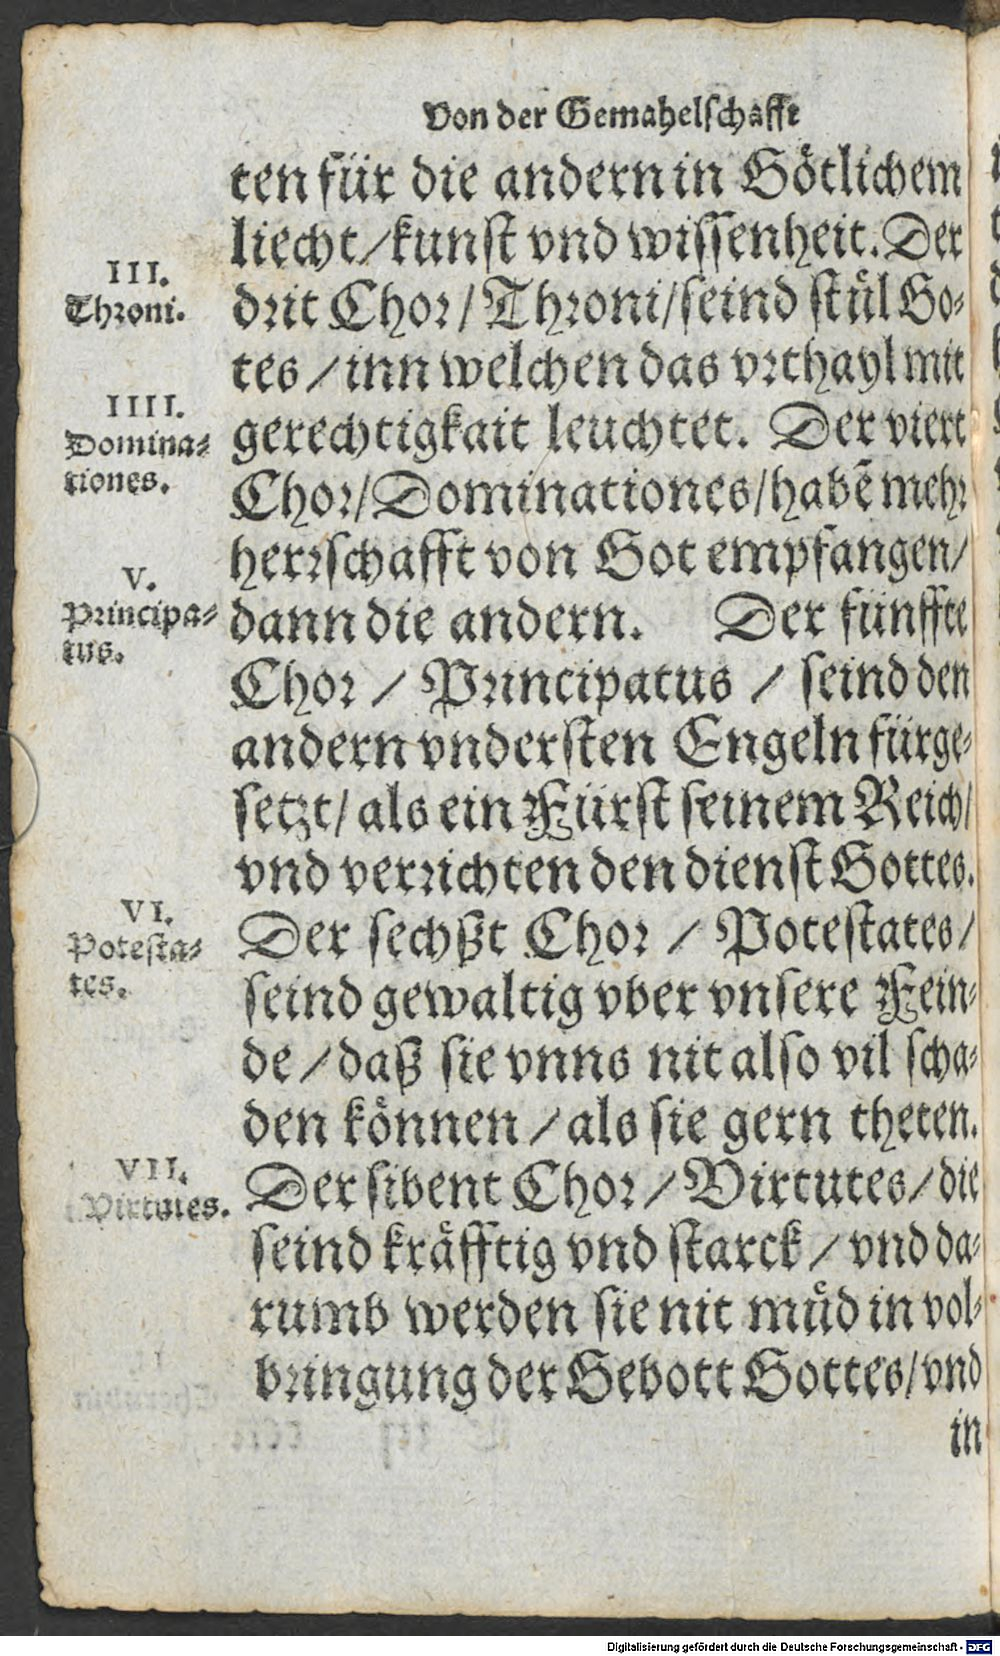 Von der Gemahelschafft
ten für die andern in Götlichem
liecht/kunst vnd wissenheit. Der
III.
Throni.
drit Chor/Throni/seind stül Go-
tes/inn welchen das vrthayl mit
IIII.
Domina-
tiones.
gerechtigkait leuchtet. Der viert
Chor/Dominationes/habē mehr
herrschafft von Got empfangen/
V.
Principa-
tus.
dann die andern. Der fünffte
Chor / Principatus / seind den
andern vndersten Engeln fürge-
setzt/als ein Fürst seinem Reich/
vnd verrichten den dienst Gottes.
VI.
Potesta-
tes.
Der sechßt Chor / Potestates/
seind gewaltig vber vnsere Fein-
de/daß sie vnns nit also vil scha-
den können/als sie gern theten.
VII.
Virtutes.
Der sibent Chor/Virtutes/die
seind kräfftig vnd starck/vnd da-
rumb werden sie nit müd in vol-
bringung der Gebott Gottes/vnd
in
Digitalisierung gefördert durch die Deutsche Forschungsgemeinschaft - DFG